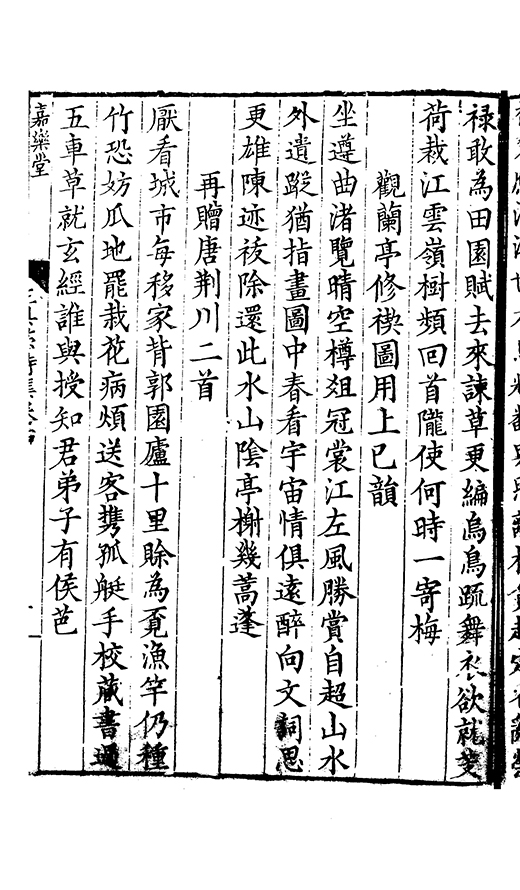 禄敢為田園賦去來諫草更編烏鳥疏舞衣欲就芰
荷裁江雲嶺樹頻回首隴使何時一寄梅
觀蘭亭修禊圖用上巳韻
坐遵曲渚覽晴空樽俎冠裳江左風勝賞自超山水
外遺蹤猶指畫圖中春看宇宙情俱遠醉向文詞思
更雄陳迹祓除還此水山陰亭榭幾蒿蓬
再贈唐荆川二首
厭看城市每移家背郭園廬十里賒為覔漁竿仍種
竹恐妨瓜地罷栽花病煩送客携孤艇手校藏書過
五車草就玄經誰與授知君弟子有侯芭
嘉樂堂